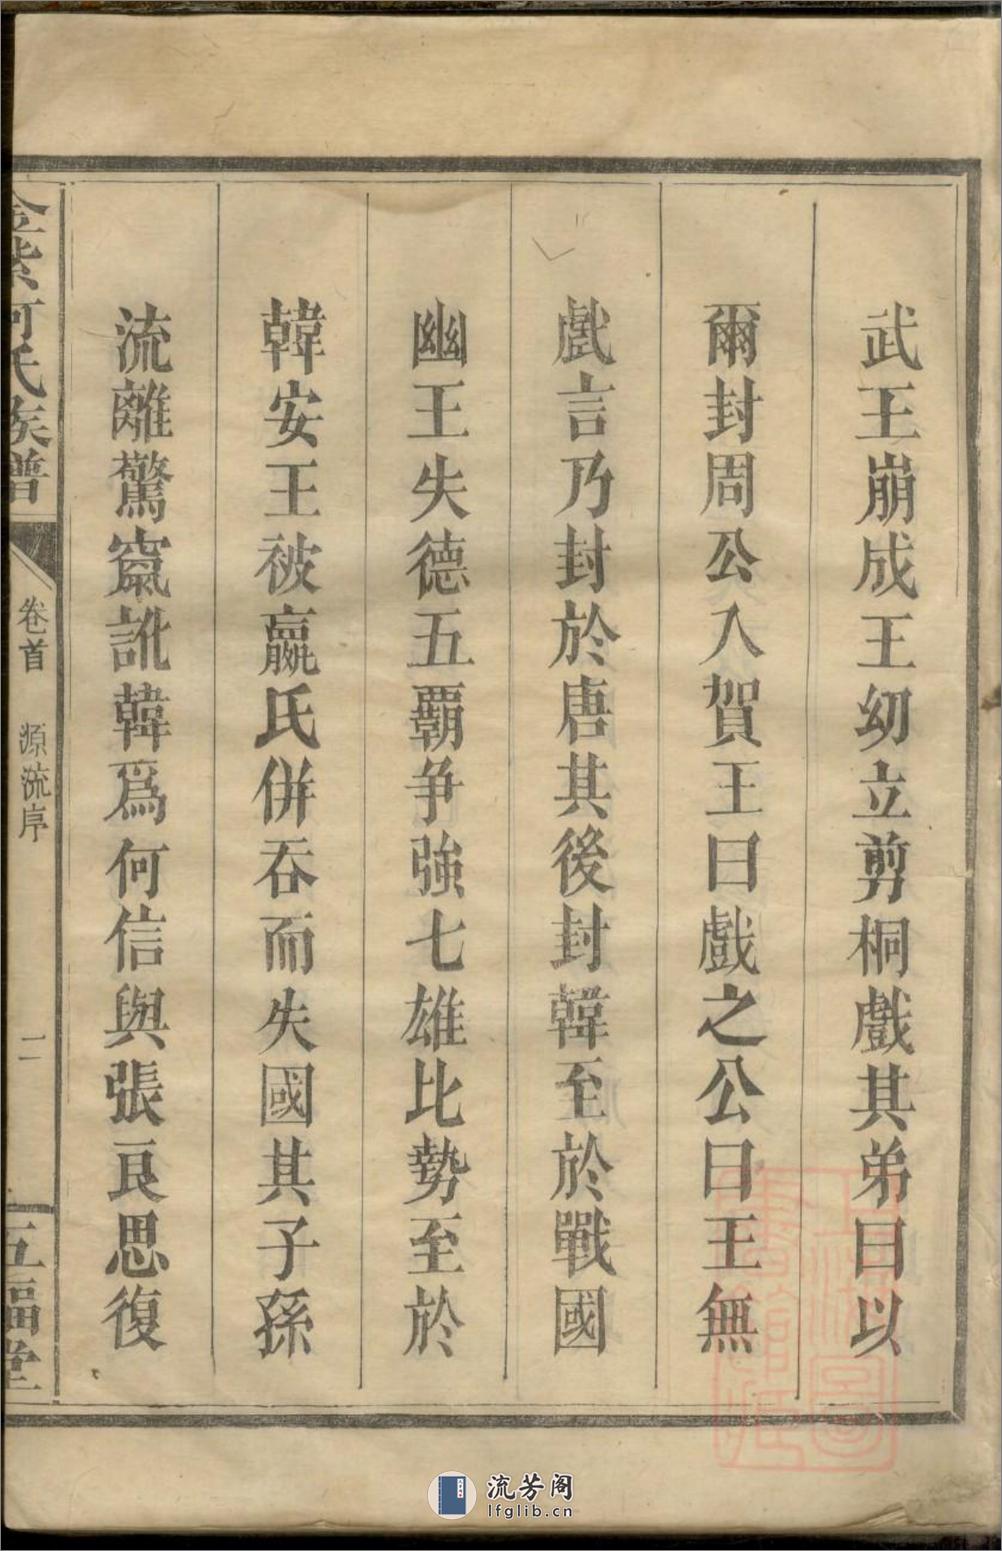 武王崩成王幼立剪桐戲其弟曰以
爾封周公入賀王曰戲之公曰王無
戲言乃封於唐其後封韓至於戰國
幽王失德五覇争強七雄比勢至於
韓安王被嬴氏併吞而失國其子孫
流離驚竄訛韓爲何信與張良思復
金紫何氏族譜
卷首 源流序 二
五福堂
流芳阁
lfglib.cn